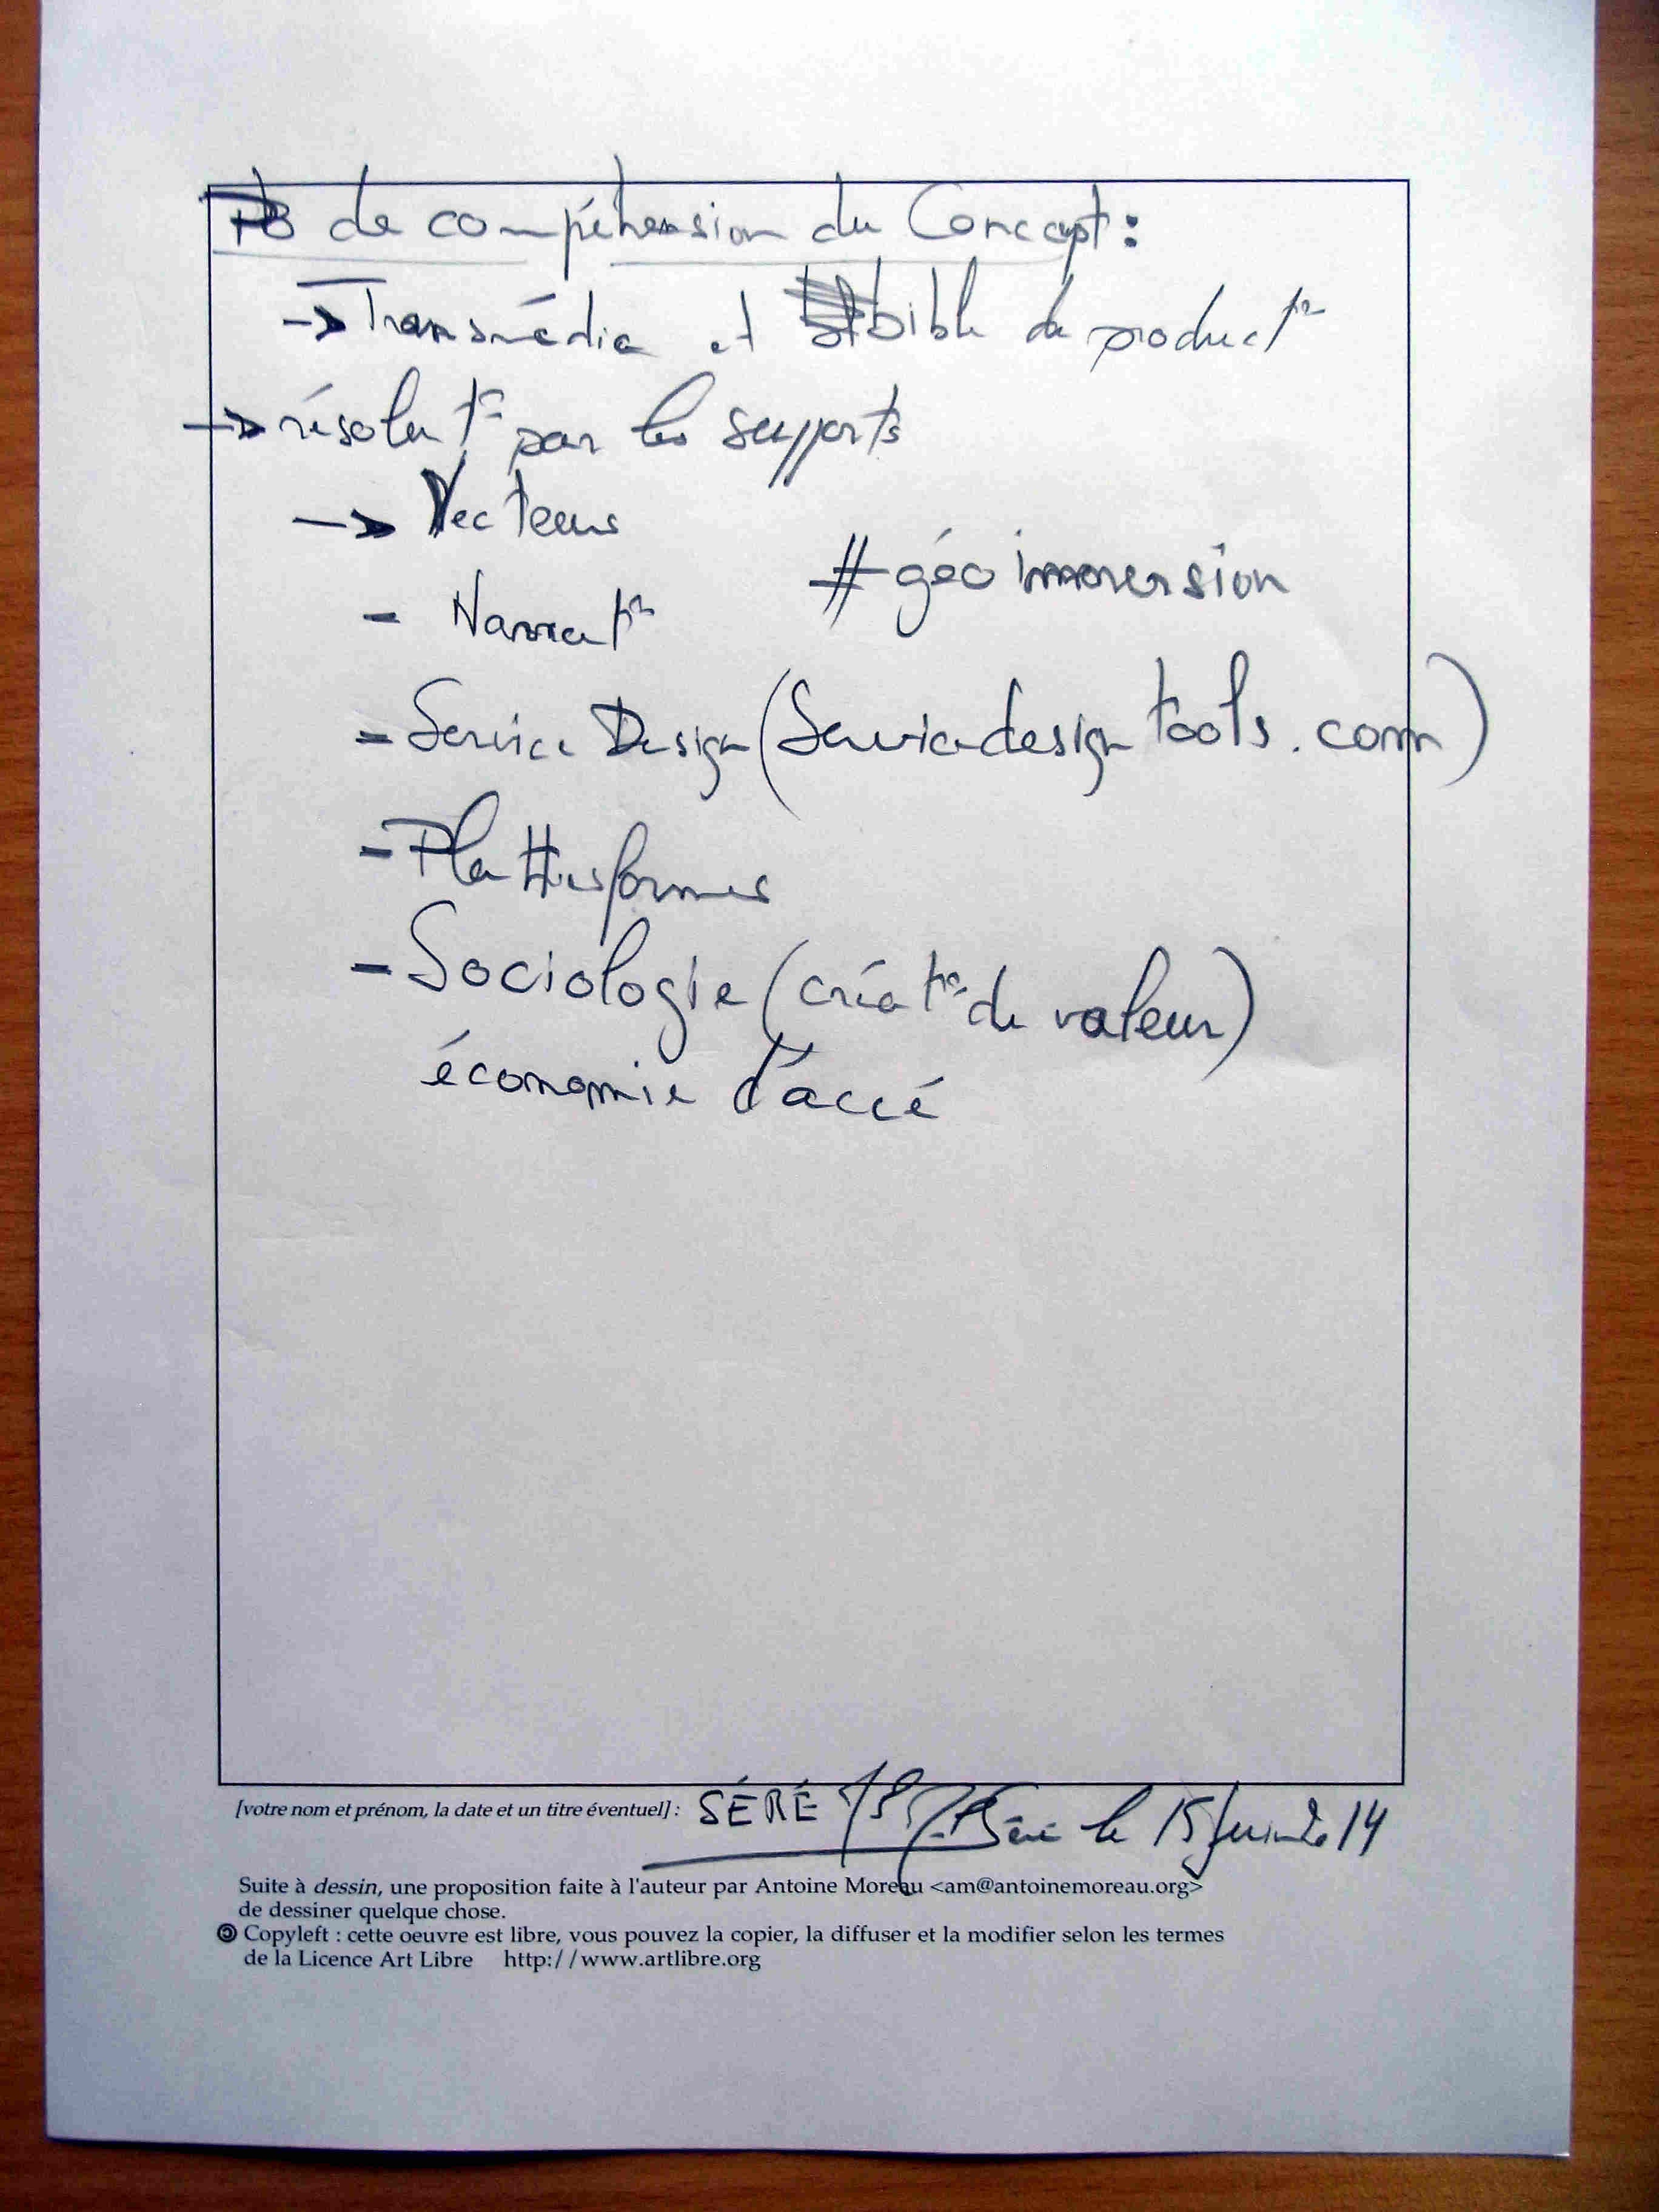 PB de compéhension du Concept :
→ Transmédia et bible de product°
→ résolut° par les supports
→ Vecteurs
# géo immersion
- Narrat°
- Service Design (Servicedesigntools.com)
- Plattesformes
- Sociologie (créat° de valeur)
économie d'accé
[votre nom et prénom, la date et un titre éventuel] : SÉRÉ le 15 14
Suite à dessin, une proposition faite à l'auteur par Antoine Moreau <am@antoinemoreau.org>
de dessiner quelque chose.
Copyleft : cette oeuvre est libre, vous pouvez la copier, la diffuser et la modifier selon les termes
de la Licence Art Libre http://www.artlibre.org